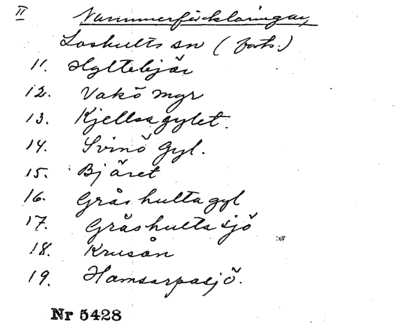 II Nummerförklaringar
Loshults sn (forts.)
11. Hyltebjär
12. Vakö myr
13. Kjellsagylet.
14. Svinö Gyl.
15. Bjäret
16. Gråshulta gyl
17. Gråshulta sjö
18. Krusån
19. Hamsarpasjö.
Nr 5428